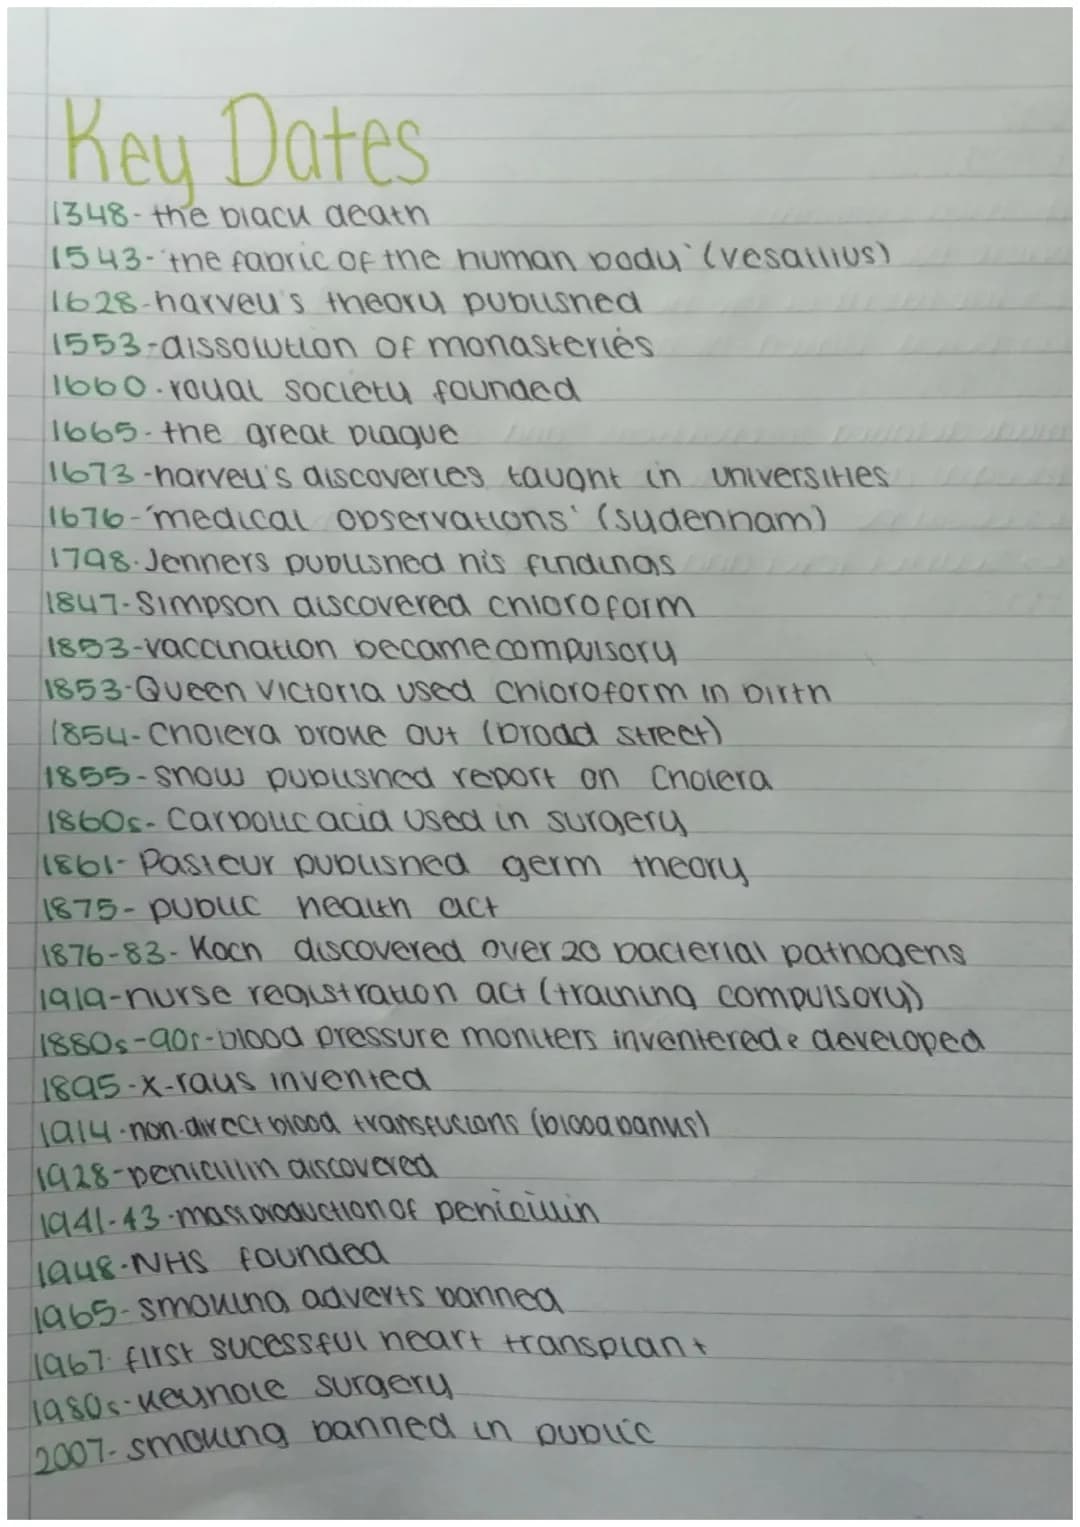 Key Dates
1348- the black death
1543- 'the fabric of the human body' (vesallius)
1628-harvey's theory published
1553-dissolution of monasteries
1660-royal society founded
1665- the great plague
1673-harvey's discoveries taught in universities
1676-'medical observations' (sydenham)
1798-Jenners published his findings
1847-Simpson discovered chloroform
1853-vaccination became compulsory
1853-Queen Victoria used chloroform in birth
1854-Cholera broke out (broad street)
1855-snow published report on Cholera
1860s- Carbolic acid used in surgery
1861- Pasteur published germ theory
1875- public health act
1876-83- Koch discovered over 20 bacterial pathogens
1919-nurse registration act (training compulsory)
1880s-90s-blood pressure moniters inventered & developed
1895-x-rays invented
1914-non-direct blood transfusions (blood banks)
1928-penicillin discovered
1941-43-mass production of penicillin
1948-NHS founded
1965-smoking adverts banned
1967- first sucessful heart transplant
1980s-keyhole surgery
2007-smoking banned in public